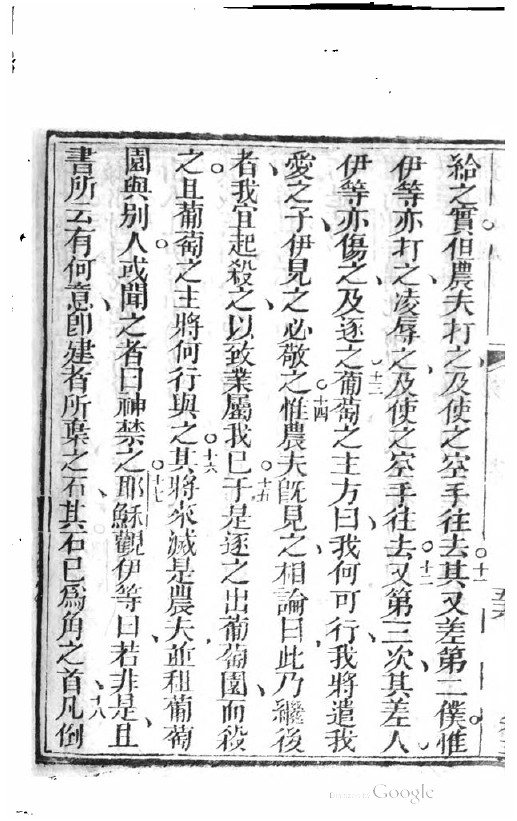 給之實但農夫打之及使之空手往去十一其又差第二僕惟
伊等亦打之凌辱之及使之空手往去十二又第三次其差人
伊等亦傷之及逐之十三葡萄之主方曰我何可行我將遣我
愛之子伊見之必敬之十四惟農夫旣見之相論曰此乃繼後
者我宜起殺之以致業屬我已十五于是逐之出葡萄園而殺
之且葡萄之主將何行與之十六其將來滅是農夫並租葡萄
園與別人或聞之者曰神禁之十七耶穌觀伊等曰若非是且
書所云有何意卽建者所棄之石其石已爲角之首十八凡倒
Digitized by Google